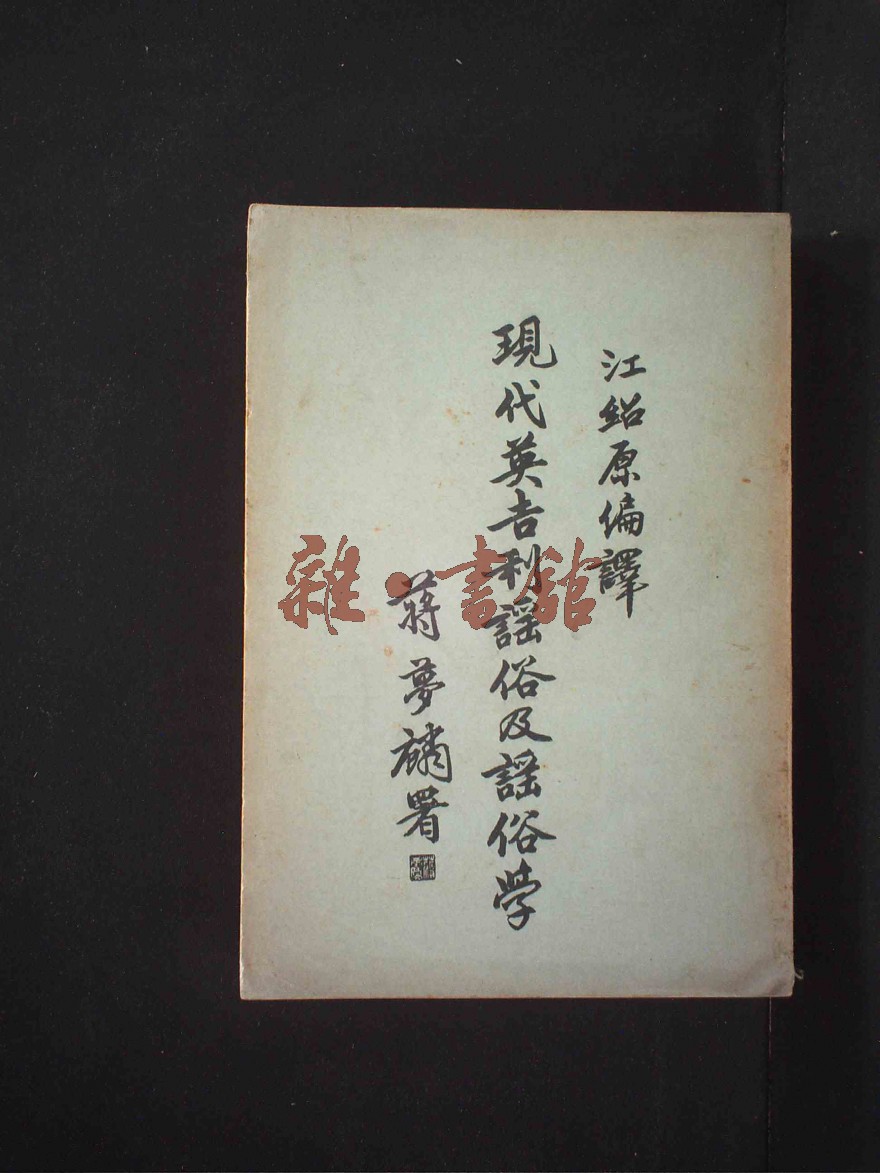 江紹原編譯
現代英吉利謠俗及謠俗學
蔣夢麟署
雜·書館